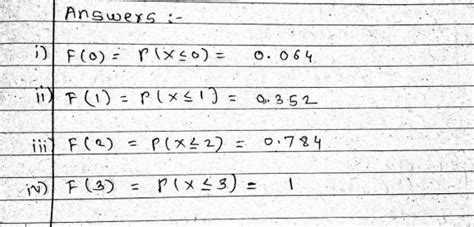 Answers :-
i) F(0) = P(X≤0) = 0.064
ii) F(1) = P(X≤1] = 0.352
iii) F(2) = P(X≤2) = 0.784
iv) F(3) = P(X≤3) = 1